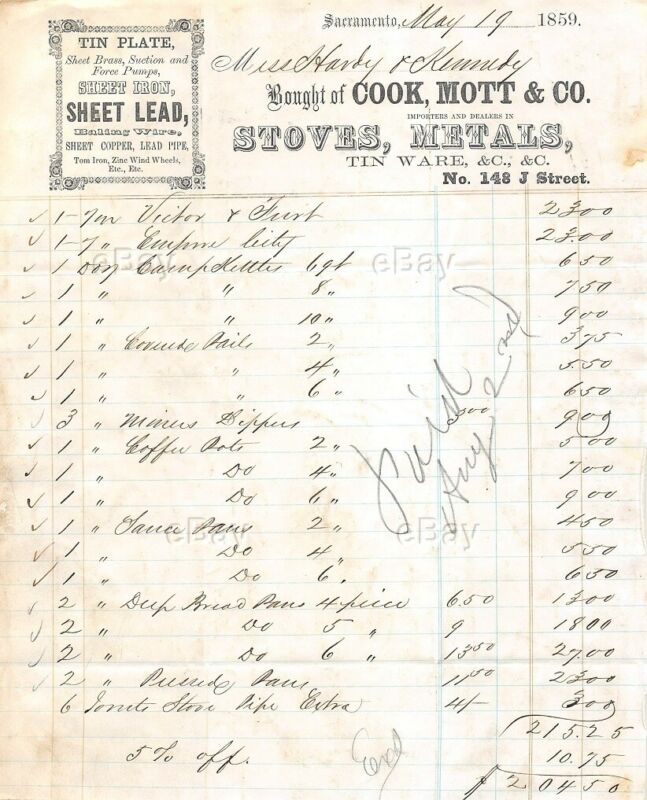 TIN PLATE,
Sheet Brass, Suction and
Force Pumps,
SHEET IRON,
SHEET LEAD,
Baling Wire,
SHEET COPPER, LEAD PIPE,
Tom Iron, Zinc Wind Wheels,
Etc., Etc.
Sacramento, May 19 1859.
Mess Hardy & Kennedy
Bought of COOK, MOTT & CO.
IMPORTERS AND DEALERS IN
STOVES, METALS,
TIN WARE, &C., &C.
No. 148 J Street.
1 - 7 in Victor & Furt 23.00
1 - 7 " Empire City 23.00
1 Doz Camp Kettles 6 qt 6 50
1 " " 8 " 7 50
1 " " 10 " 9 00
1 " Covered Pails 2 " 3 75
1 " " 4 " 5.50
1 " " 6 " 6 50
3 " Miners Dippers 3.00 9 00
1 " Coffee Pots 2 " 5 00
1 " Do 4 " 7 00
1 " Do 6 " 9 00
1 " Sauce Pans 2 " 4 50
1 " Do 4 " 5 50
1 " Do 6 " 6 50
2 " Deep Bread Pans 4 piece 6 50 13 00
2 " Do 5 " 9 18 00
2 " Do 6 " 13 50 27 00
2 " Pressed Pans 11 50 23 00
6 Joints Stove Pipe Extra 4/- 3 00
215.25
5% off. 10.75
$ 204 50
Paid
Aug 2nd
eBay
eBay
eBay
eBay